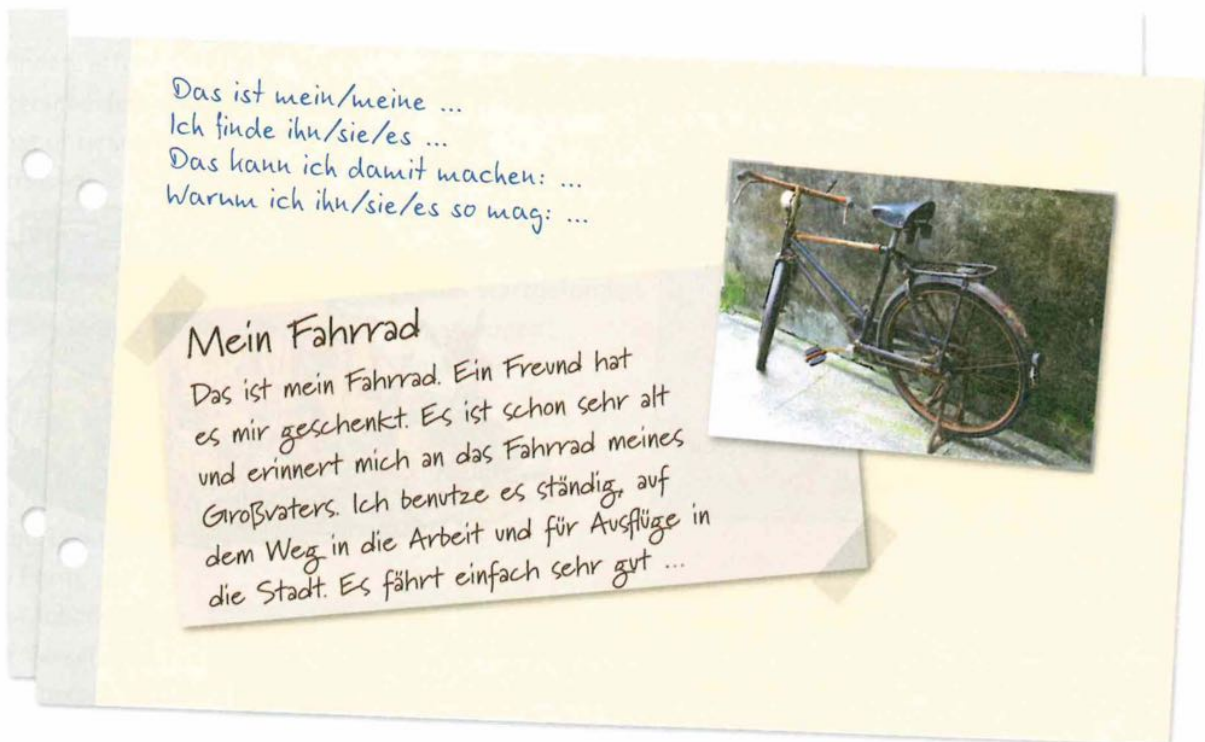 Das ist mein/meine ...
Ich finde ihn/sie/es ...
Das kann ich damit machen: ...
Warum ich ihn/sie/es so mag: ...
Mein Fahrrad
Das ist mein Fahrrad. Ein Freund hat
es mir geschenkt. Es ist schon sehr alt
und erinnert mich an das Fahrrad meines
Großvaters. Ich benutze es ständig, auf
dem Weg in die Arbeit und für Ausflüge in
die Stadt. Es fährt einfach sehr gut ...